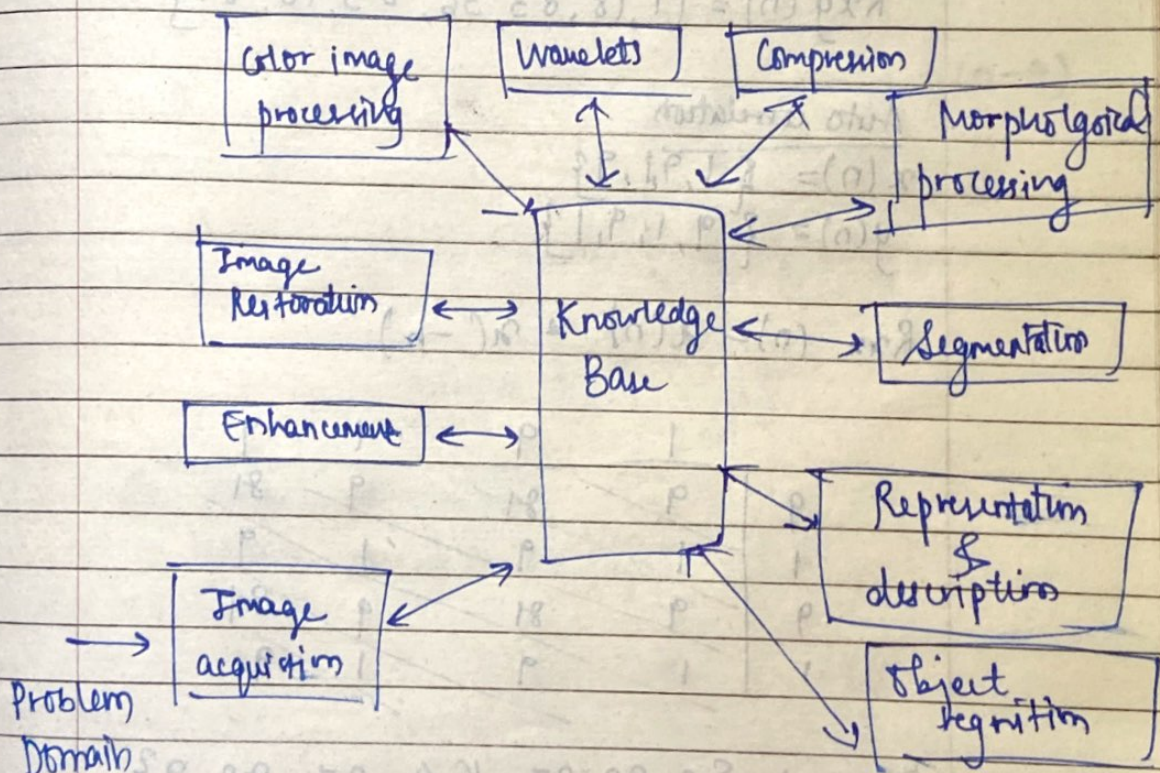 Color image
processing
Wavelets
Compression
Morpholgoical
processing
Image
Restoration
Knowledge
Base
Segmentation
Enhancement
Representation
&
description
Image
acquistion
Problem
Domain
Object
regnition